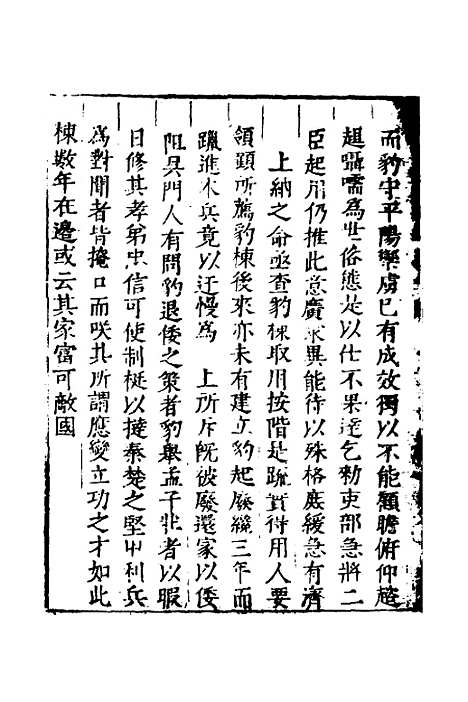 而豹守平陽禦虜已有成效獨以不能顧瞻俯仰趑
趄囁嚅為世俗態是以仕不果達乞勑吏部急將二
臣起用仍推此意廣求異能待以殊格庶緩急有濟
上納之命亟查豹棟取用按階是疏實得用人要
領顧所薦豹棟後來亦未有建立豹起廢纔三年而
躐進本兵竟以迂慢為　上所斥既被廢還家以倭
阻具門人有問豹退倭之策者豹舉孟子壯者以暇
日修其孝弟忠信可使制梃以撻秦楚之堅甲利兵
為對聞者皆掩口而咲其所謂應變立功之才如此
棟数年在邊或云其家富可敵國